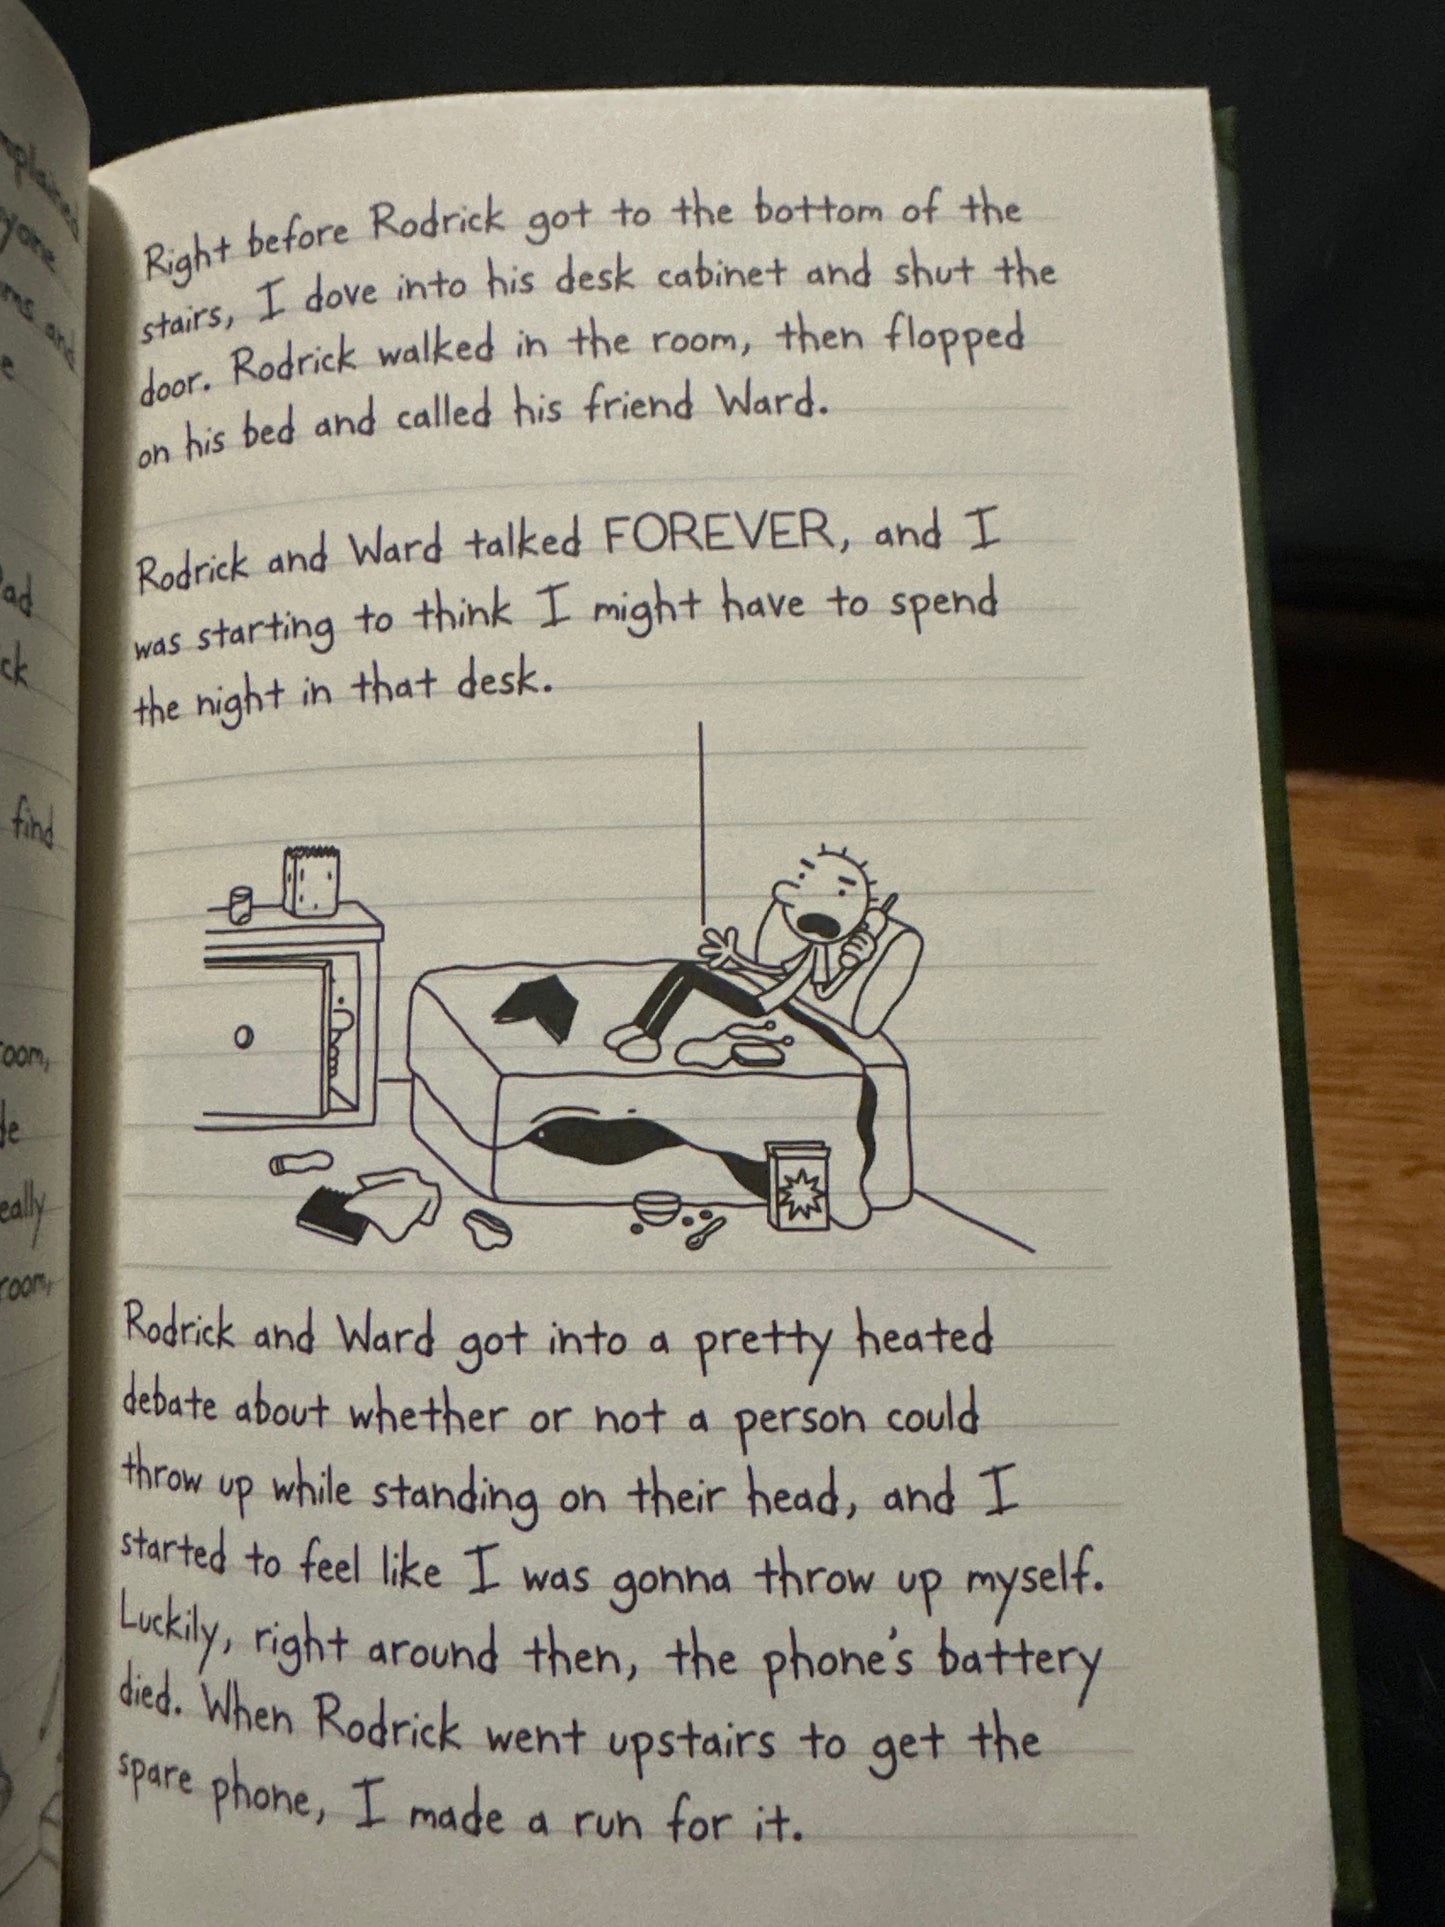 mplained
yone
ms and
e
Dad
ck
find
room,
de
eally
room,
Right before Rodrick got to the bottom of the
stairs, I dove into his desk cabinet and shut the
door. Rodrick walked in the room, then flopped
on his bed and called his friend Ward.
Rodrick and Ward talked FOREVER, and I
was starting to think I might have to spend
the night in that desk.
Rodrick and Ward got into a pretty heated
debate about whether or not a person could
throw up while standing on their head, and I
started to feel like I was gonna throw up myself.
Luckily, right around then, the phone's battery
died. When Rodrick went upstairs to get the
spare phone, I made a run for it.